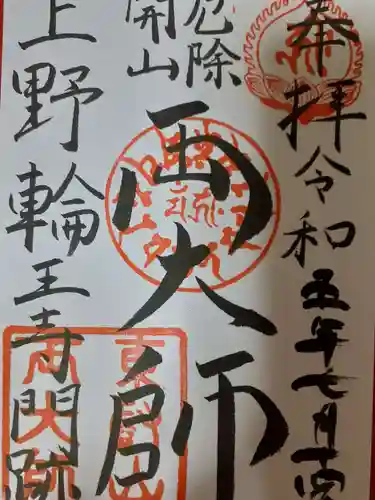 奉拝 令和五年七月十四日
厄除
開山
両大師
上野輪王寺門跡